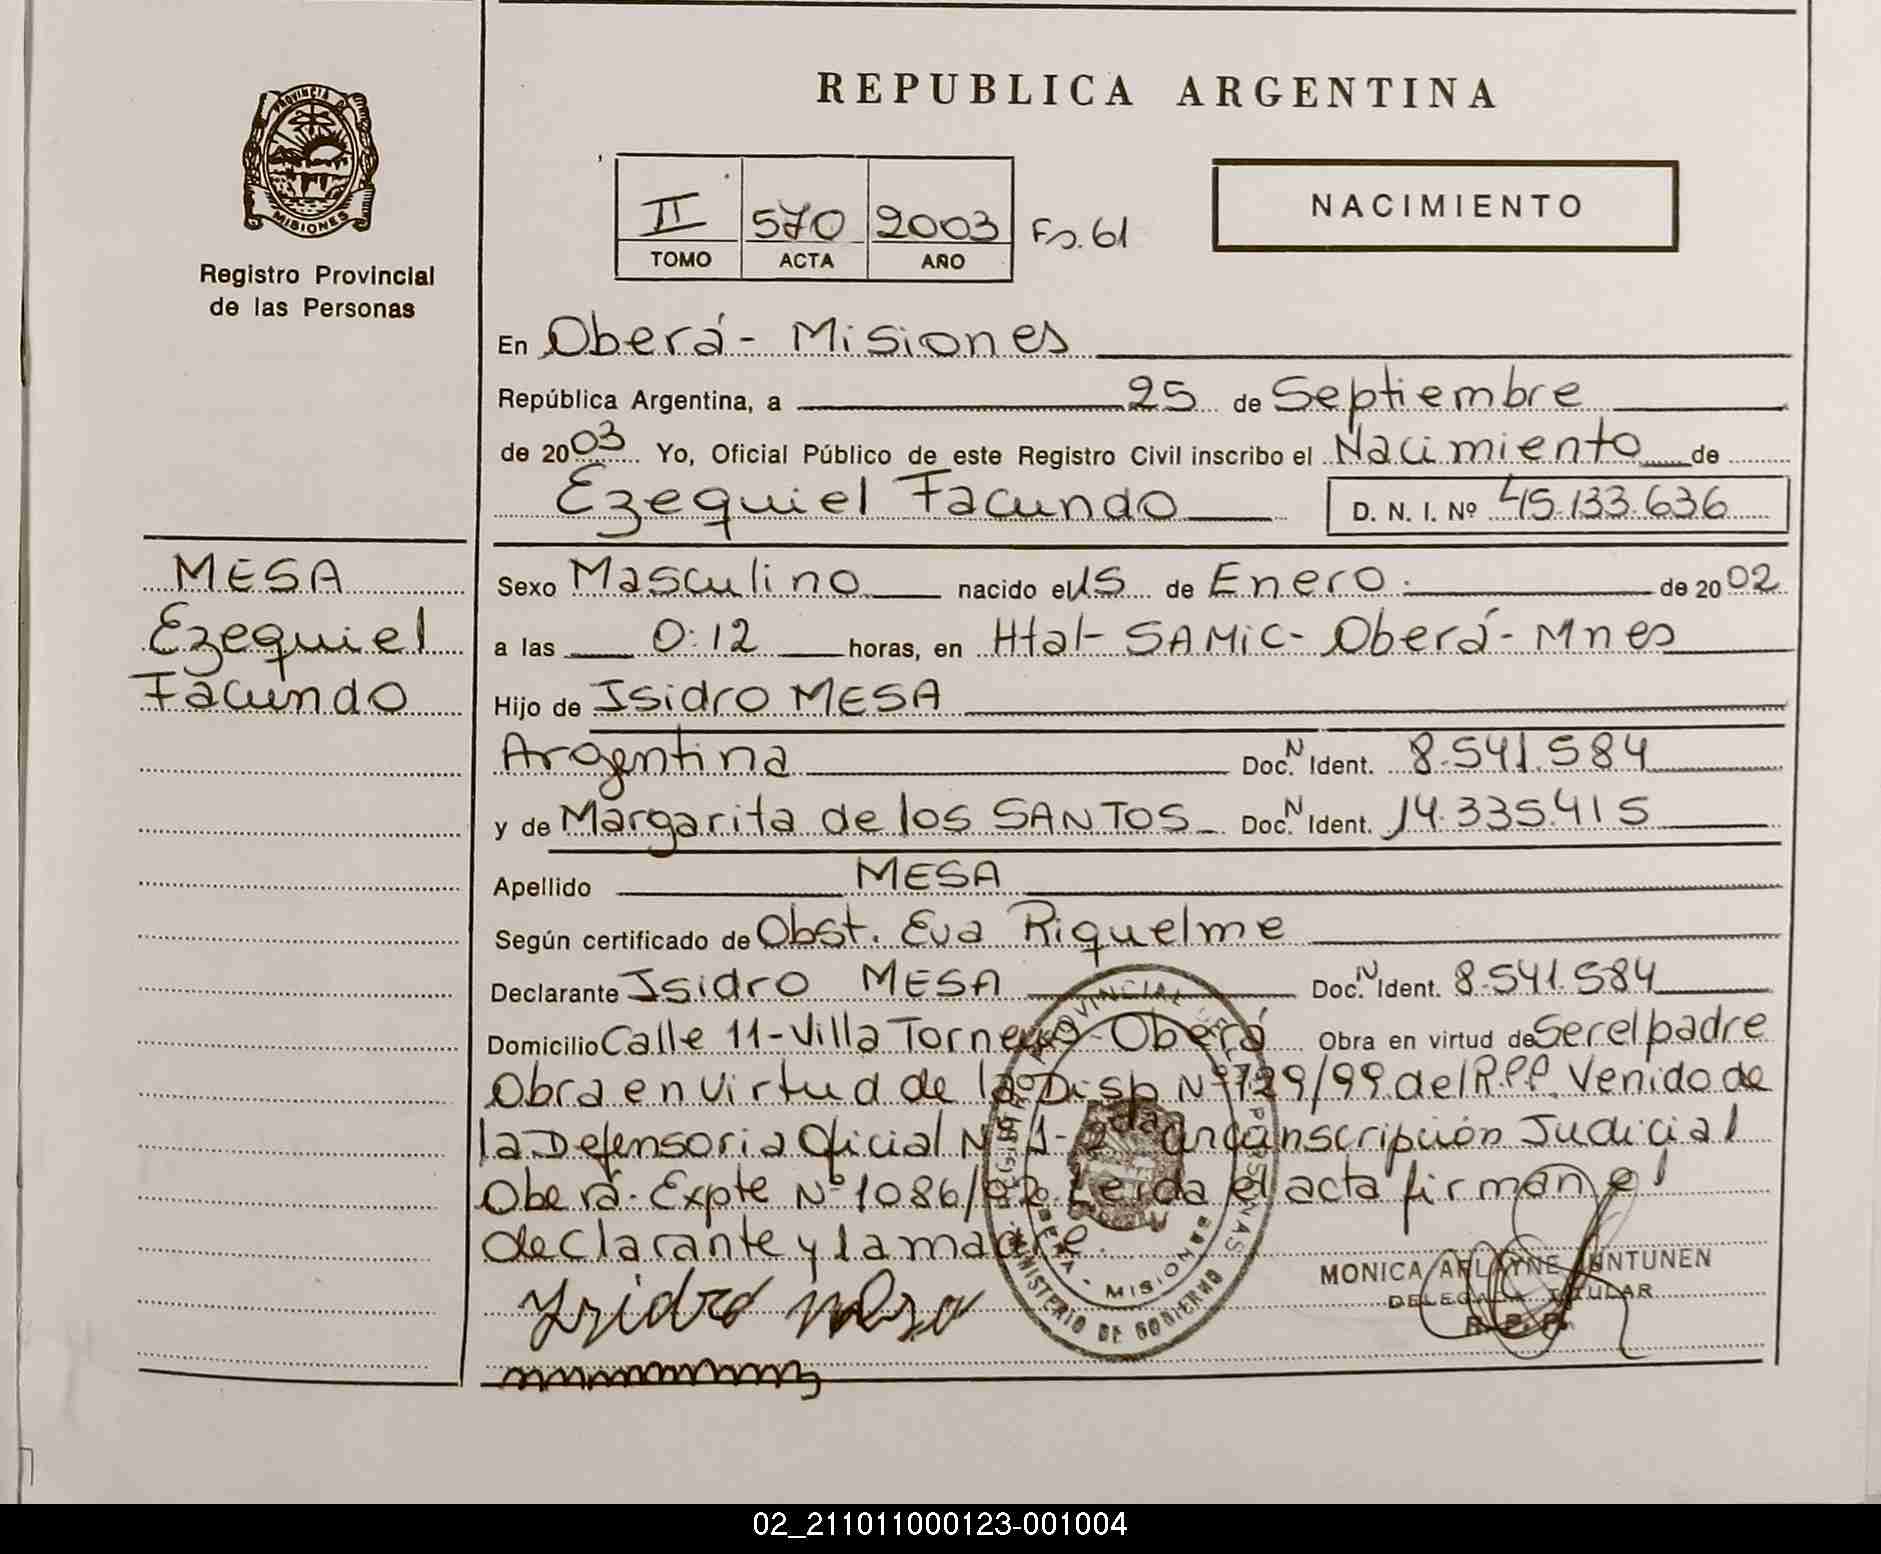 REPUBLICA ARGENTINA
PROVINCIA D
MISIONES
Registro Provincial
de las Personas
II 570 2003 Fs. 61
TOMO ACTA AÑO
NACIMIENTO
En Oberá - Misiones
República Argentina, a 25 de Septiembre
de 2003 Yo, Oficial Público de este Registro Civil inscribo el Nacimiento de
Ezequiel Facundo D. N. I. Nº 45.133.636
MESA
Ezequiel
Facundo
Sexo Masculino nacido el 15 de Enero de 2002
a las 0:12 horas, en Htal - SAMIC - Oberá - Mnes
Hijo de Isidro MESA
Argentina Doc. N Ident. 8.541.584
y de Margarita de los SANTOS Doc. N Ident. 14.335.415
Apellido MESA
Según certificado de Obst. Eva Riquelme
Declarante Isidro MESA Doc. N Ident. 8.541.584
Domicilio Calle 11 - Villa Oberá Obra en virtud de Ser el padre
Obra en virtud de la Disp Nº 729/99 del R.P.P. Venido de
la Defensoria Oficial Nº 1 - 2da Circunscripción Judicial
Oberá - Expte Nº 1086/02. Leida el acta firman el
declarante y la madre.
Isidro Mesa
PROVINCIAL DE PERSONAS
MINISTERIO DE GOBIERNO
OBERA - MISIONES
MONICA ARLAYNE UNTUNEN
DELEGADA TITULAR
R. P. P.
02_211011000123-001004